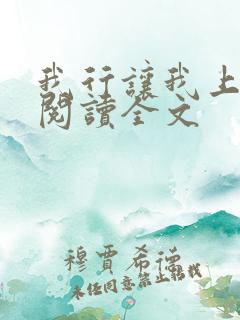 我行讓我上
閱讀全文
穆賈希德
未經同意禁止轉載